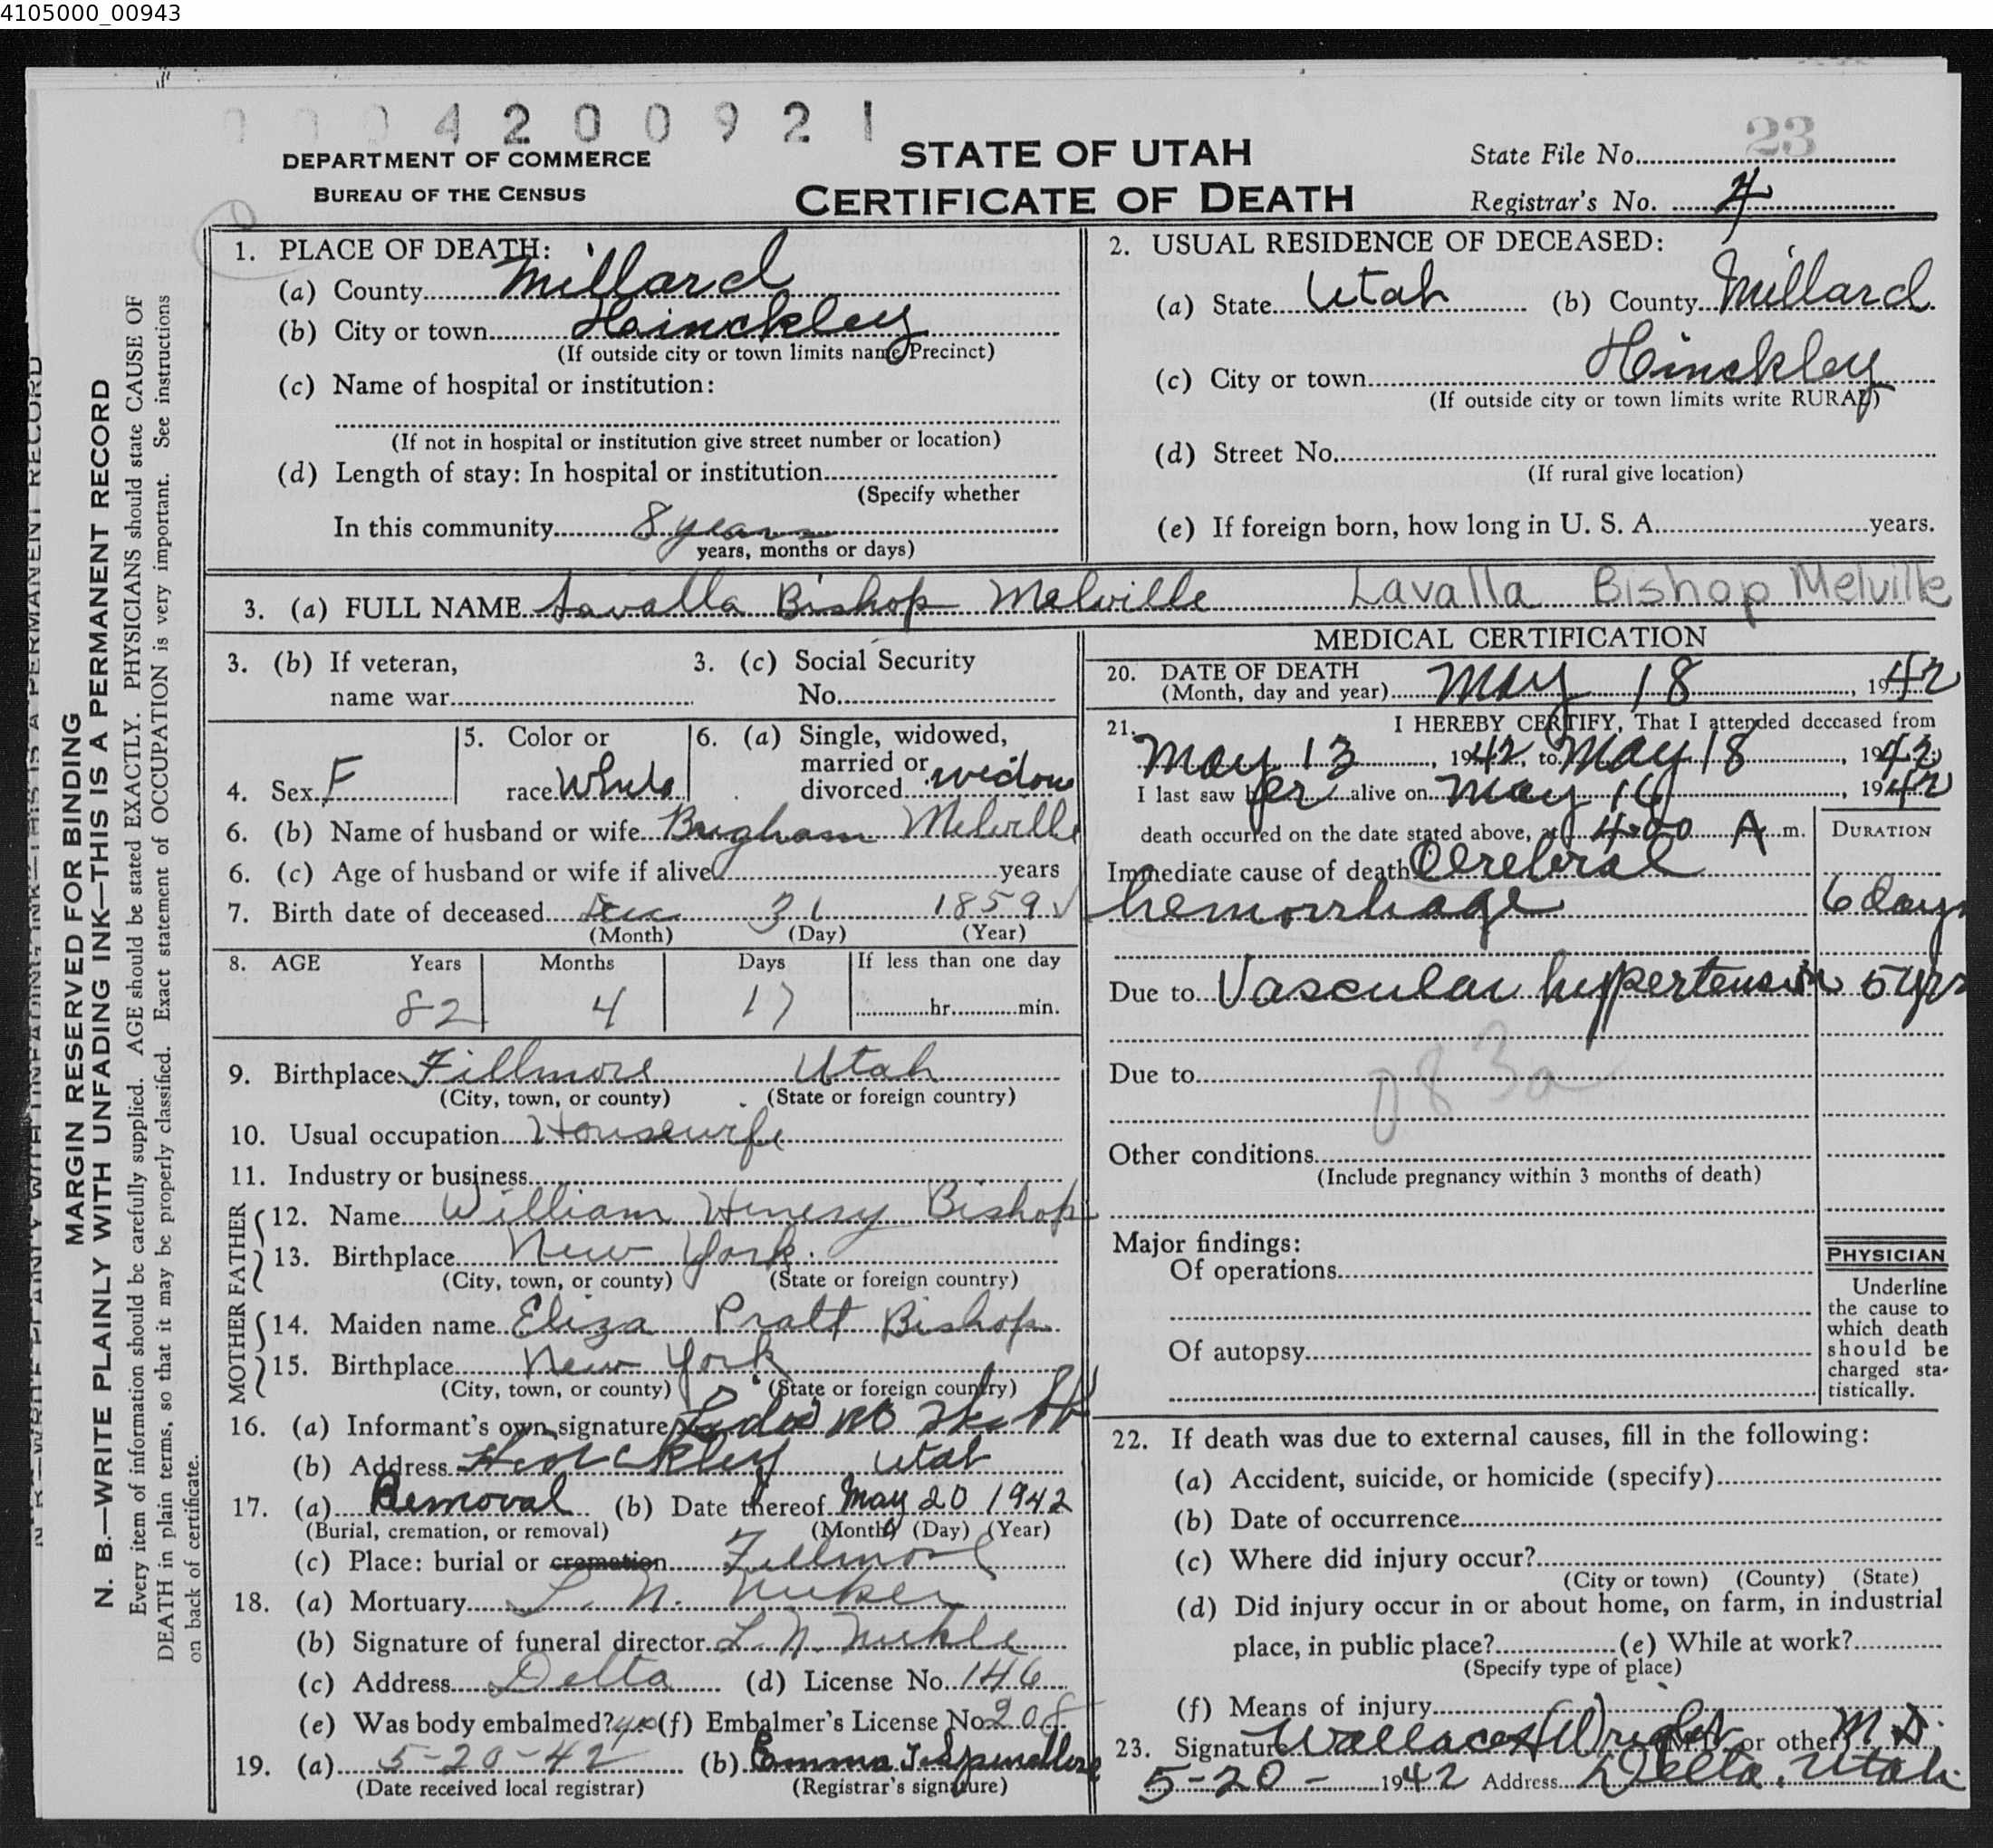 4105000_00943
0004200921
DEPARTMENT OF COMMERCE
BUREAU OF THE CENSUS
STATE OF UTAH
CERTIFICATE OF DEATH
State File No. 23
Registrar's No. 4
MARGIN RESERVED FOR BINDING
N. B.—WRITE PLAINLY WITH UNFADING INK—THIS IS A PERMANENT RECORD
Every item of information should be carefully supplied. AGE should be stated EXACTLY. PHYSICIANS should state CAUSE OF
DEATH in plain terms, so that it may be properly classified. Exact statement of OCCUPATION is very important. See instructions
on back of certificate.
1. PLACE OF DEATH:
(a) County Millard
(b) City or town Heinckley
(If outside city or town limits name Precinct)
(c) Name of hospital or institution:
(If not in hospital or institution give street number or location)
(d) Length of stay: In hospital or institution
(Specify whether
In this community 8 years
years, months or days)
2. USUAL RESIDENCE OF DECEASED:
(a) State Utah (b) County Millard
(c) City or town Hinckley
(If outside city or town limits write RURAL)
(d) Street No.
(If rural give location)
(e) If foreign born, how long in U. S. A. years.
3. (a) FULL NAME Lavalla Bishop Melville Lavalla Bishop Melville
3. (b) If veteran,
name war
3. (c) Social Security
No.
4. Sex F
5. Color or
race White
6. (a) Single, widowed,
married or
divorced widow
6. (b) Name of husband or wife Brigham Melville
6. (c) Age of husband or wife if alive years
7. Birth date of deceased Dec 31 1859
(Month) (Day) (Year)
8. AGE Years Months Days If less than one day
82 4 17 hr. min.
9. Birthplace Fillmore Utah
(City, town, or county) (State or foreign country)
10. Usual occupation Housewife
11. Industry or business
FATHER
12. Name William Henery Bishop
13. Birthplace New York
(City, town, or county) (State or foreign country)
MOTHER
14. Maiden name Eliza Pratt Bishop
15. Birthplace New York
(City, town, or county) (State or foreign country)
16. (a) Informant's own signature
(b) Address Hinckley Utah
17. (a) Removal (b) Date thereof May 20 1942
(Burial, cremation, or removal) (Month) (Day) (Year)
(c) Place: burial or cremation Fillmore
18. (a) Mortuary L. N.
(b) Signature of funeral director L. N.
(c) Address Delta (d) License No. 146
(e) Was body embalmed? (f) Embalmer's License No. 208
19. (a) 5-20-42 (b) Emma
(Date received local registrar) (Registrar's signature)
MEDICAL CERTIFICATION
20. DATE OF DEATH
(Month, day and year) May 18, 1942
21. I HEREBY CERTIFY, That I attended deceased from
May 13, 1942, to May 18, 1942
I last saw her alive on May 16, 1942
death occurred on the date stated above, at 4:00 A m.
DURATION
Immediate cause of death Cerebral
hemorrhage 6 days
Due to Vascular hypertension 5 yrs
Due to 083a
Other conditions
(Include pregnancy within 3 months of death)
Major findings:
Of operations
Of autopsy
PHYSICIAN
Underline
the cause to
which death
should be
charged sta-
tistically.
22. If death was due to external causes, fill in the following:
(a) Accident, suicide, or homicide (specify)
(b) Date of occurrence
(c) Where did injury occur?
(City or town) (County) (State)
(d) Did injury occur in or about home, on farm, in industrial
place, in public place? (e) While at work?
(Specify type of place)
(f) Means of injury
23. Signature Wallace Wright (M.D. or other) M D.
5-20- 1942 Address Delta, Utah.